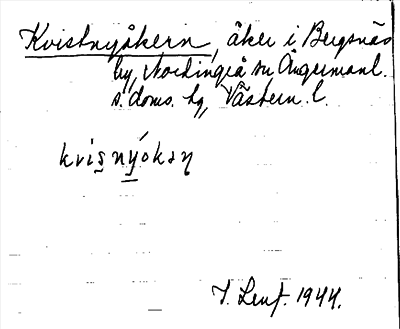 Kvistnyåkern, åker i Bergsnäs
by, Nordingrå sn Ångermanl.
s. doms. hg, Västern. l.
kvisnýokəɳ
J. Lenf. 1944.